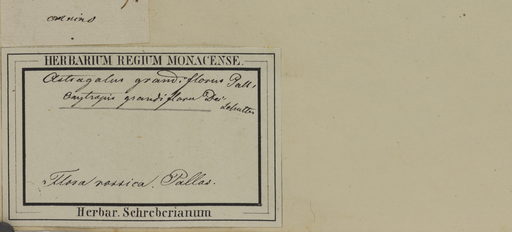 HERBARIUM REGIUM MONACENSE.
Astragalus grandiflorus Pall.
Oxytropis grandiflora Dec.
Flora rossica. Pallas.
Herbar. Schreberianum